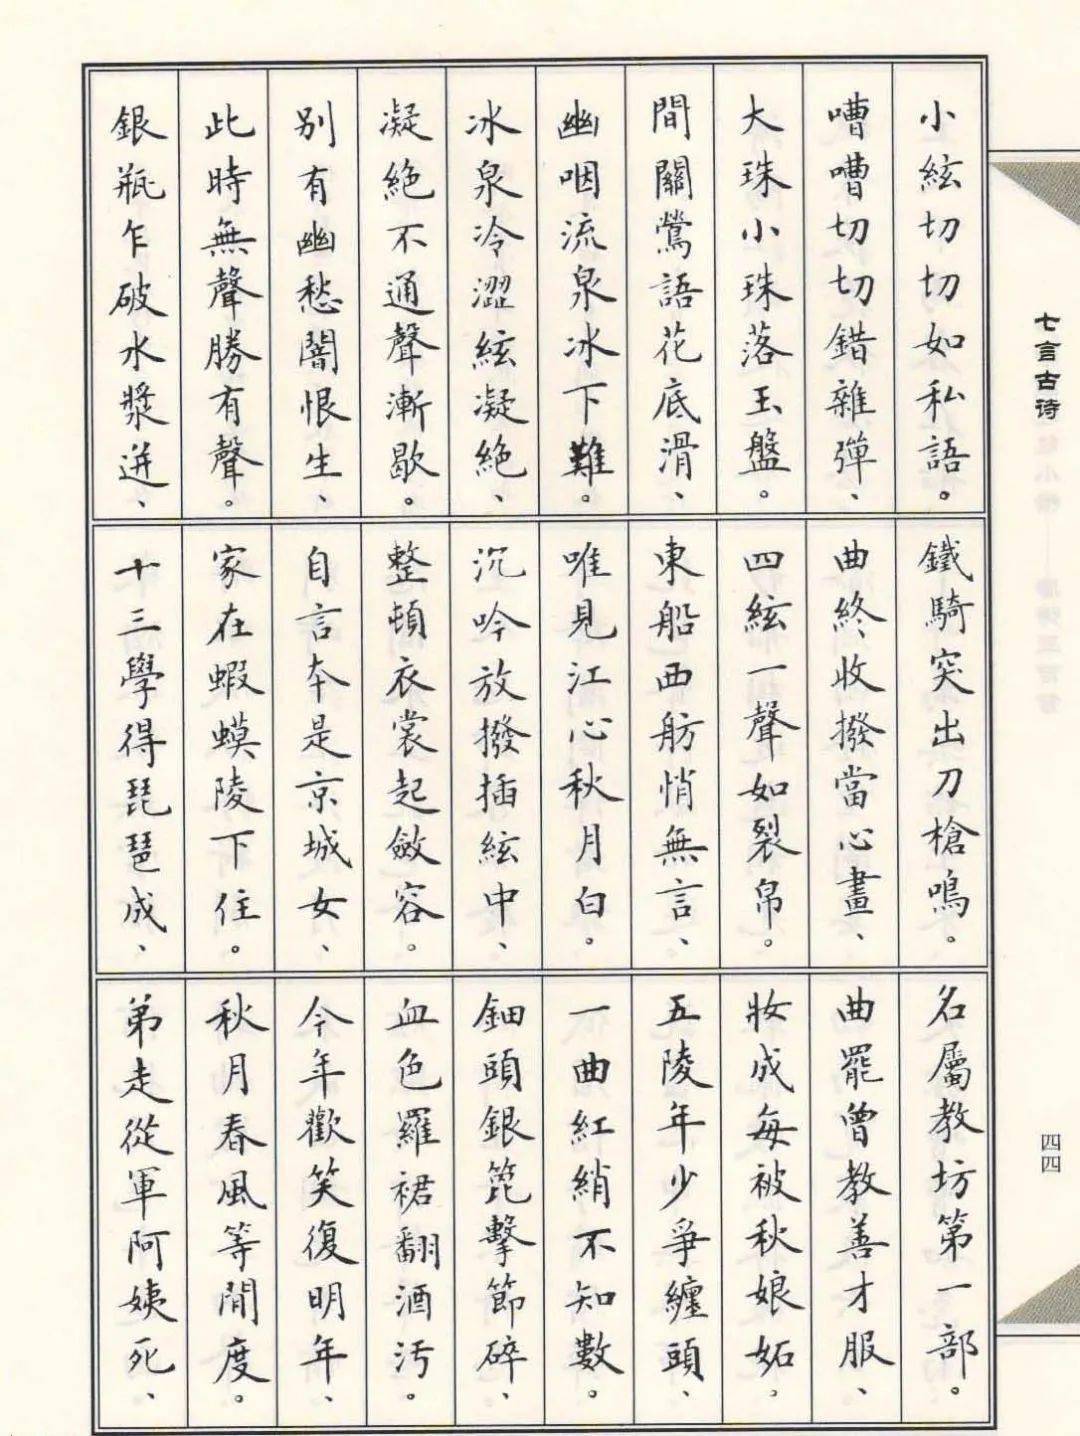 七言古诗
小絃切切如私語。
嘈嘈切切錯雜彈、
大珠小珠落玉盤。
間關鶯語花底滑、
幽咽流泉冰下難。
冰泉冷澀絃凝絶、
凝絶不通聲漸歇。
别有幽愁闇恨生、
此時無聲勝有聲。
銀瓶乍破水漿迸、
鐵騎突出刀槍鳴。
曲終收撥當心畫、
四絃一聲如裂帛。
東船西舫悄無言、
唯見江心秋月白。
沉吟放撥插絃中、
整頓衣裳起斂容。
自言本是京城女、
家在蝦蟆陵下住。
十三學得琵琶成、
名屬教坊第一部。
曲罷曾教善才服、
妝成每被秋娘妬。
五陵年少爭纏頭、
一曲紅綃不知數。
鈿頭銀篦擊節碎、
血色羅裙翻酒汚。
今年歡笑復明年、
秋月春風等閒度。
弟走從軍阿姨死、
四四